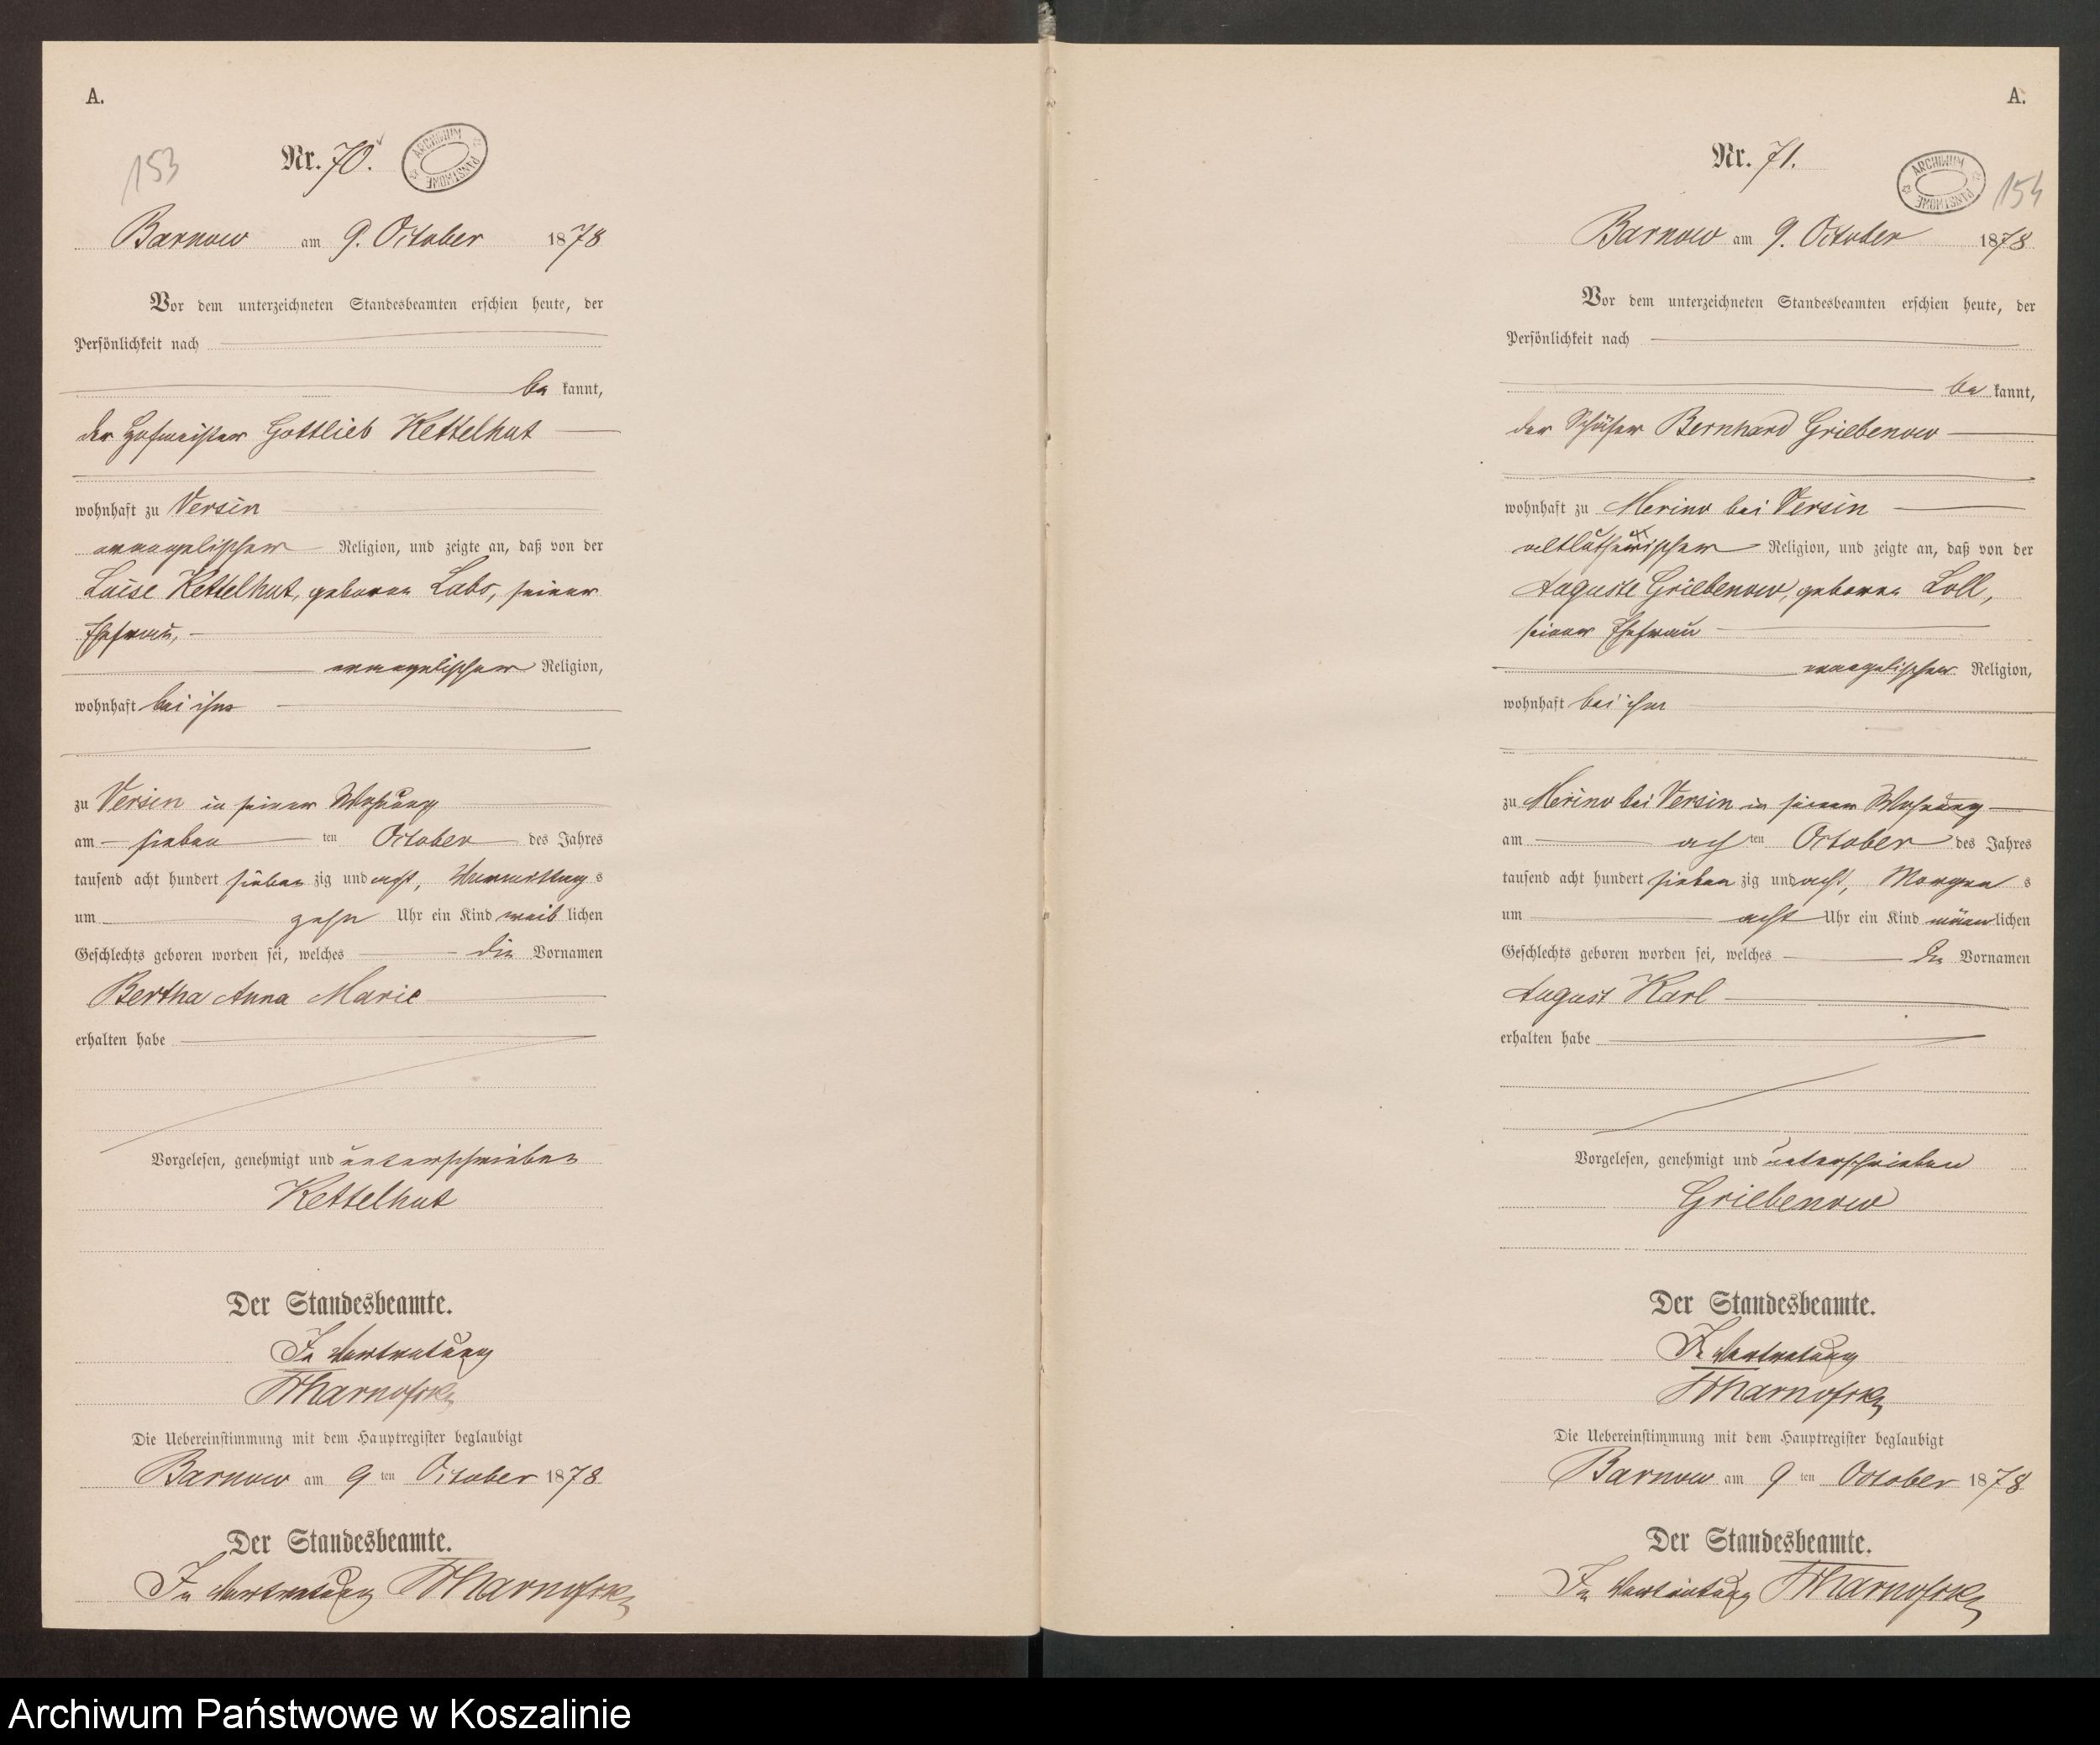 A.
153
Nr. 70.
ARCHIWUM PAŃSTWOWE
Barnow am 9. October 1878
Vor dem unterzeichneten Standesbeamten erschien heute, der
Persönlichkeit nach
be kannt,
der Hofmeister Gottlieb Kettelhut
wohnhaft zu Versin
evangelischer Religion, und zeigte an, daß von der
Luise Kettelhut, geborne Labs, seiner
Ehefrau,
evangelischer Religion,
wohnhaft bei ihm
zu Versin in seiner Wohnung
am sieben ten October des Jahres
tausend acht hundert sieben zig und acht, Vormittag s
um zehn Uhr ein Kind weib lichen
Geschlechts geboren worden sei, welches die Vornamen
Bertha Anna Marie
erhalten habe
Vorgelesen, genehmigt und unterschrieben
Kettelhut
Der Standesbeamte.
In Vertretung
Die Uebereinstimmung mit dem Hauptregister beglaubigt
Barnow am 9 ten October 1878
Der Standesbeamte.
In Vertretung
A.
Nr. 71.
ARCHIWUM PAŃSTWOWE
154
Barnow am 9. October 1878
Vor dem unterzeichneten Standesbeamten erschien heute, der
Persönlichkeit nach
be kannt,
der Schäfer Bernhard Griebenow
wohnhaft zu Merino bei Versin
altlutherischer Religion, und zeigte an, daß von der
Auguste Griebenow, geborne Loll,
seiner Ehefrau
evangelischer Religion,
wohnhaft bei ihm
zu Merino bei Versin in seiner Wohnung
am ach ten October des Jahres
tausend acht hundert sieben zig und acht, Morgen s
um acht Uhr ein Kind männ lichen
Geschlechts geboren worden sei, welches die Vornamen
August Karl
erhalten habe
Vorgelesen, genehmigt und unterschrieben
Griebenow
Der Standesbeamte.
In Vertretung
Die Uebereinstimmung mit dem Hauptregister beglaubigt
Barnow am 9 ten October 1878
Der Standesbeamte.
In Vertretung
Archiwum Państwowe w Koszalinie